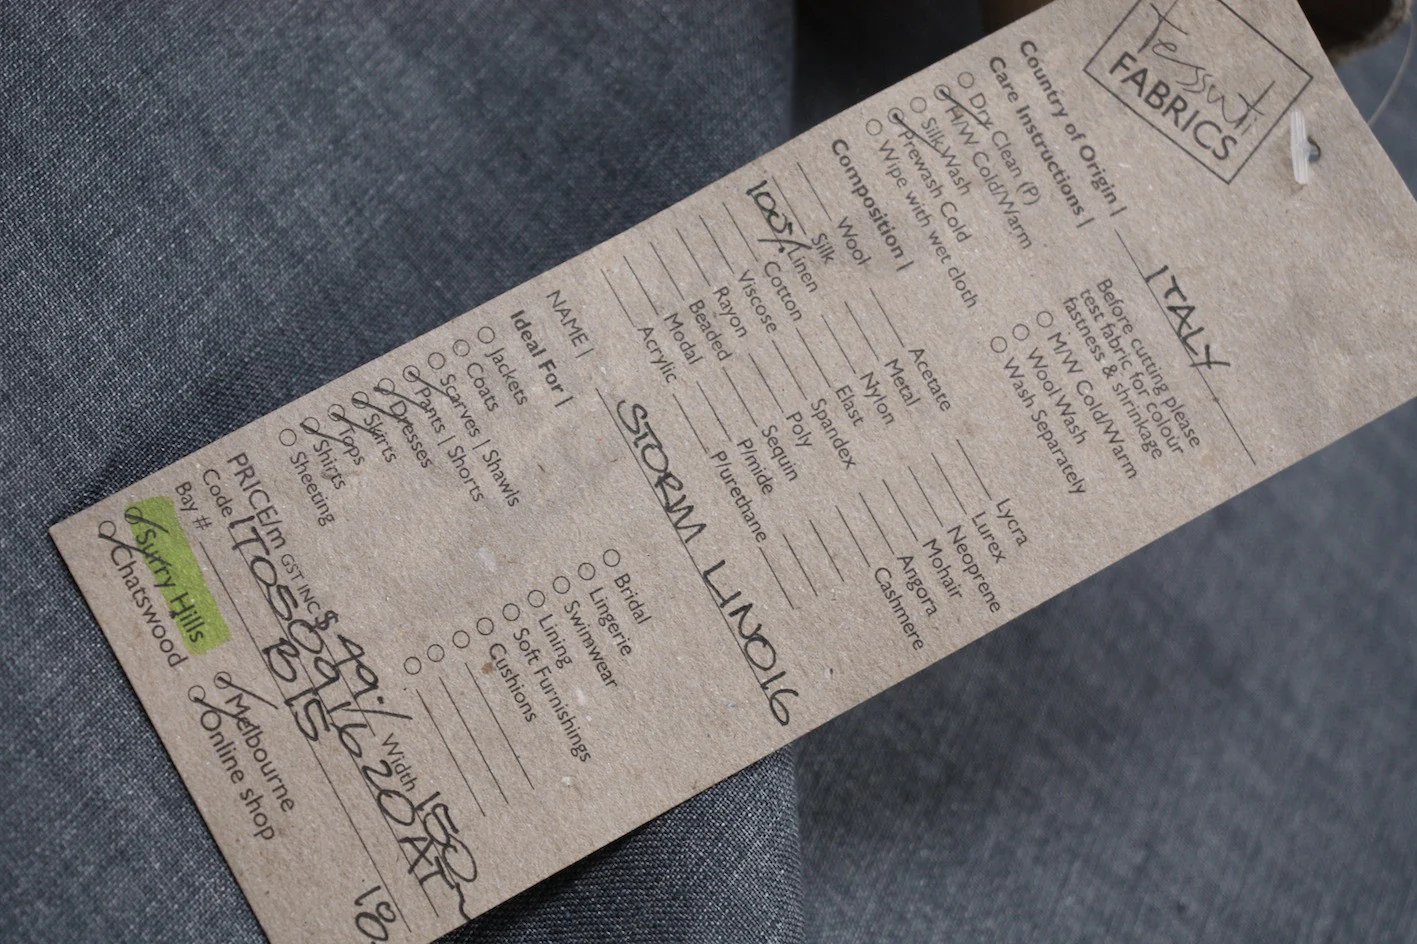 tessuti
FABRICS
Country of Origin | ITALY
Care Instructions |
Dry Clean (P)
H/W Cold/Warm
Silk Wash
Prewash Cold
Wipe with wet cloth
Before cutting please
test fabric for colour
fastness & shrinkage
M/W Cold/Warm
Wool Wash
Wash Separately
Composition |
Wool
Silk
100% Linen
Cotton
Viscose
Rayon
Beaded
Modal
Acrylic
Acetate
Metal
Nylon
Elast
Spandex
Poly
Sequin
P/mide
P/urethane
Lycra
Lurex
Neoprene
Mohair
Angora
Cashmere
NAME | STORM LINO16
Ideal For |
Jackets
Coats
Scarves | Shawls
Pants | Shorts
Dresses
Skirts
Tops
Shirts
Sheeting
Bridal
Lingerie
Swimwear
Lining
Soft Furnishings
Cushions
PRICE/m GST INC $ 49.- Width 150
Code ITOS091620AT
Bay # B15
Surry Hills
Chatswood
Melbourne
Online shop